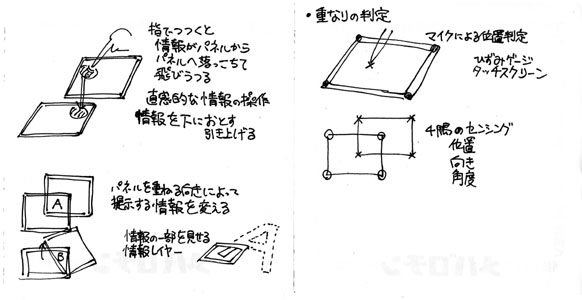 指でつつくと
情報がパネルから
パネルへ落っこちて
飛びうつる
直感的な情報の操作
情報を下におとす
引き上げる
パネルを重ねる向きによって
提示する情報を変える
A
B
情報の一部を見せる
情報レイヤー
A
・重なりの判定
マイクによる位置判定
ひずみゲージ
タッチスクリーン
4隅のセンシング
位置
向き
角度